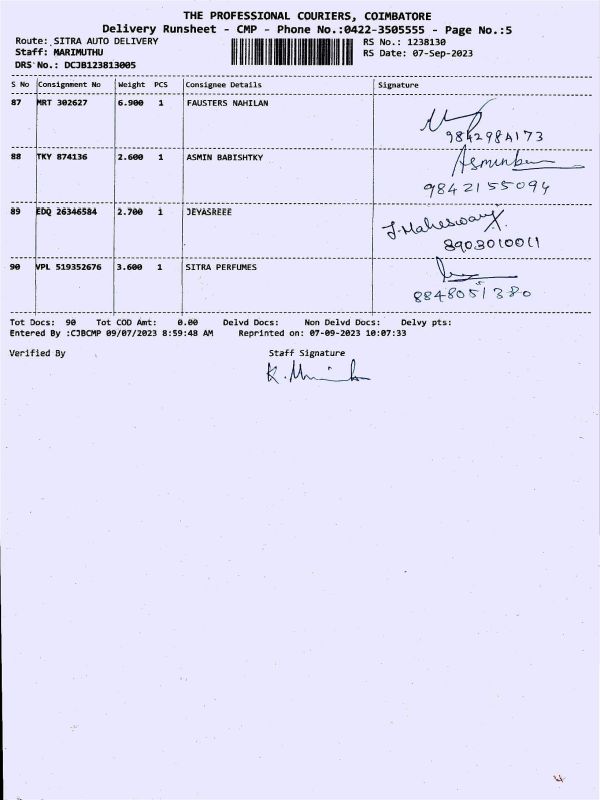 THE PROFESSIONAL COURIERS, COIMBATORE
Delivery Runsheet - CMP - Phone No.:0422-3505555 - Page No.:5
Route: SITRA AUTO DELIVERY RS No.: 1238130
Staff: MARIMUTHU RS Date: 07-Sep-2023
DRS No.: DCJB123813005
S No Consignment No Weight PCS Consignee Details Signature
87 MRT 302627 6.900 1 FAUSTERS NAHILAN
9842984173
88 TKY 874136 2.600 1 ASMIN BABISHTKY
9842155094
89 EDQ 26346584 2.700 1 JEYASREEE J.Maheswary
8903010011
90 VPL 519352676 3.600 1 SITRA PERFUMES
8848051380
Tot Docs: 90 Tot COD Amt: 0.00 Delvd Docs: Non Delvd Docs: Delvy pts:
Entered By :CJBCMP 09/07/2023 8:59:48 AM Reprinted on: 07-09-2023 10:07:33
Verified By Staff Signature